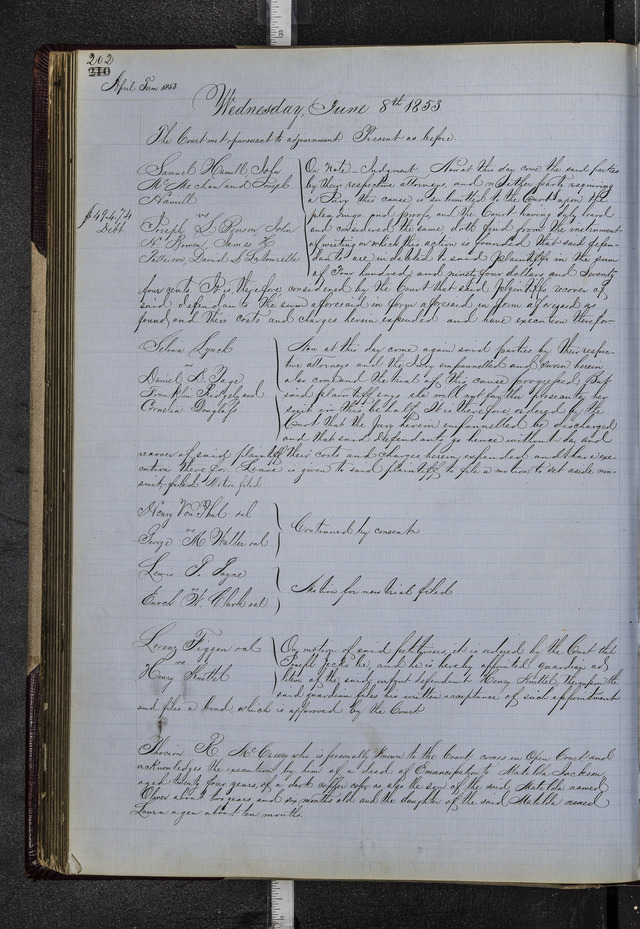 202
210
April Term 1853
Wednesday, June 8th 1853
The Court met pursuant to adjournment Present as before
Samuel Hamill John
McMechan and Joseph
Hamill
vs
Joseph L. John
N. Bowen James H.
Patterson David S.
$494.74
Debt
On Note - Judgment Now at this day come the said parties
by their respective attorneys, and neither party requiring
a Jury this cause is submitted to the Court upon the
pleadings and proofs, and the Court having fully heard
and considered the same, doth find from the instrument
of writing on which this action is founded that said defen
dants are indebted to said plaintiffs in the sum
of Four hundred and ninety four dollars and Seventy
four cents It is therefore considered by the Court that said plaintiffs recover of
said defendants the sum aforesaid in form aforesaid as
found, and their costs and charges herein expended and have execution therefor
Lynch
vs
Daniel D. Page
Franklin Ridgely and
Cornelia
Now at this day come again said parties by their respec
tive attorneys and the Jury empannelled and sworn herein
also come and the trial of this cause progressed But
said plaintiff says she will not further prosecute her
suit in this behalf It is therefore ordered by the
Court that the Jury herein empannelled be discharged
and that said defendants go hence without day and
recover of said plaintiff their costs and charges herein expended and have exe
cution therefor. Leave is given to said plaintiff to file a motion to set aside non
suit filed Motion filed
Henry Von Phul et al
vs
George M Walker et al
Continued by consent
Lewis P. Payne
vs
Enoch W. Clark et al
Motion for new trial filed
Lorenz Figgen et al
vs
Henry Knittel
On motion of said petitioners, it is ordered by the Court that
Joseph be, and he is hereby appointed guardian ad
litem of the said infant defendant Henry Knittel, thereupon the
said guardian files his written acceptance of said appointment
and files a bond, which is approved by the Court
Thornton R. McCreery who is personally known to the Court comes in Open Court and
acknowledges the execution by him of a deed of Emancipation to Matilda Jackson
aged twenty four years, of a dark copper color as also the son of the said Matilda named
Oliver about two years and six months old and the daughter of the said Matilda named
Laura agen about ten months.